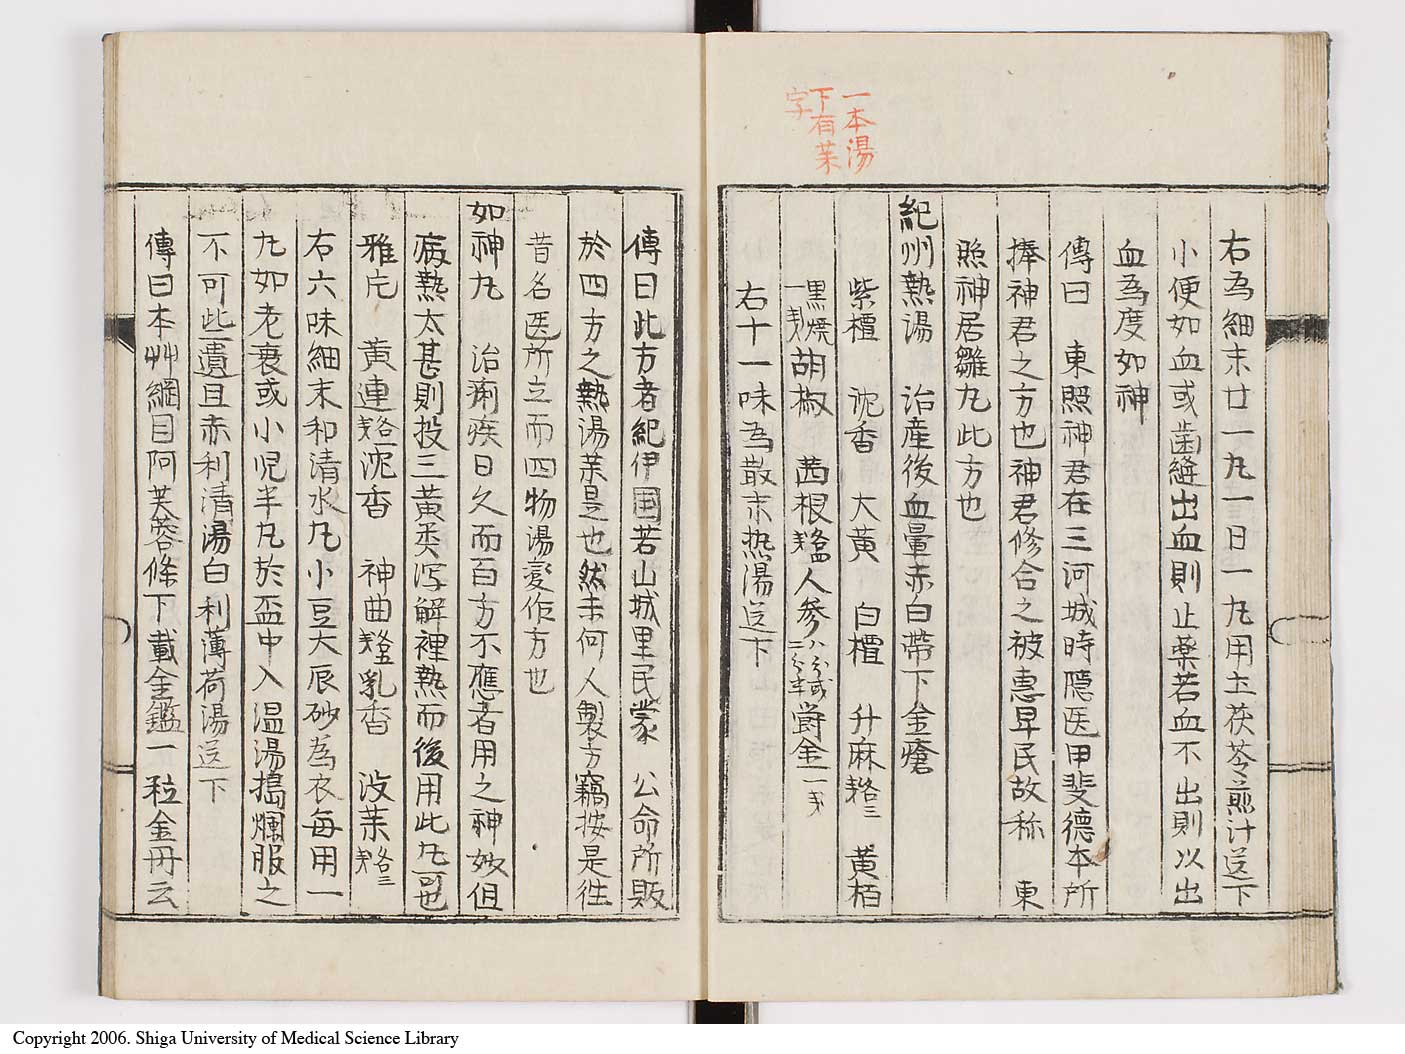 一本湯
下有茱
字
右為細末廿一丸一日一丸用土茯苓煎汁送下
小便如血或歯縫出血則止薬若血不出則以出
血為度如神
傳曰 東照神君在三河城時隠医甲斐德本所
捧神君之方也神君修合之被惠早民故称 東
照神居雛丸此方也
紀州熱湯 治産後血暈赤白帶下金瘡
紫檀 沈香 大黄 白檀 升麻 各三 黄栢
黒燒 一 胡椒 茜根 人参 八分或 三分半 欝金 一
右十一味為散末热湯送下
傳曰此方者紀伊国若山城里民蒙 公命所販
於四方之熱湯茱是也然未何人製方竊按是往
昔名医所立而四物湯変作方也
如神丸 治痢疾日久而百方不應者用之神妙但
病熱太甚則投三黄类泻解裡熱而後用此丸可也
雅片 黄連 沈香 神曲 乳香 没茱
右六味細末和清水丸小豆大辰砂為衣每用一
丸如老衰或小児半丸於盃中入温湯搗爛服之
不可些遺且赤利清湯白利薄荷湯送下
傳曰本艸綱目阿芙蓉條下載金鑑一 粒金丹云
Copyright 2006. Shiga University of Medical Science Library